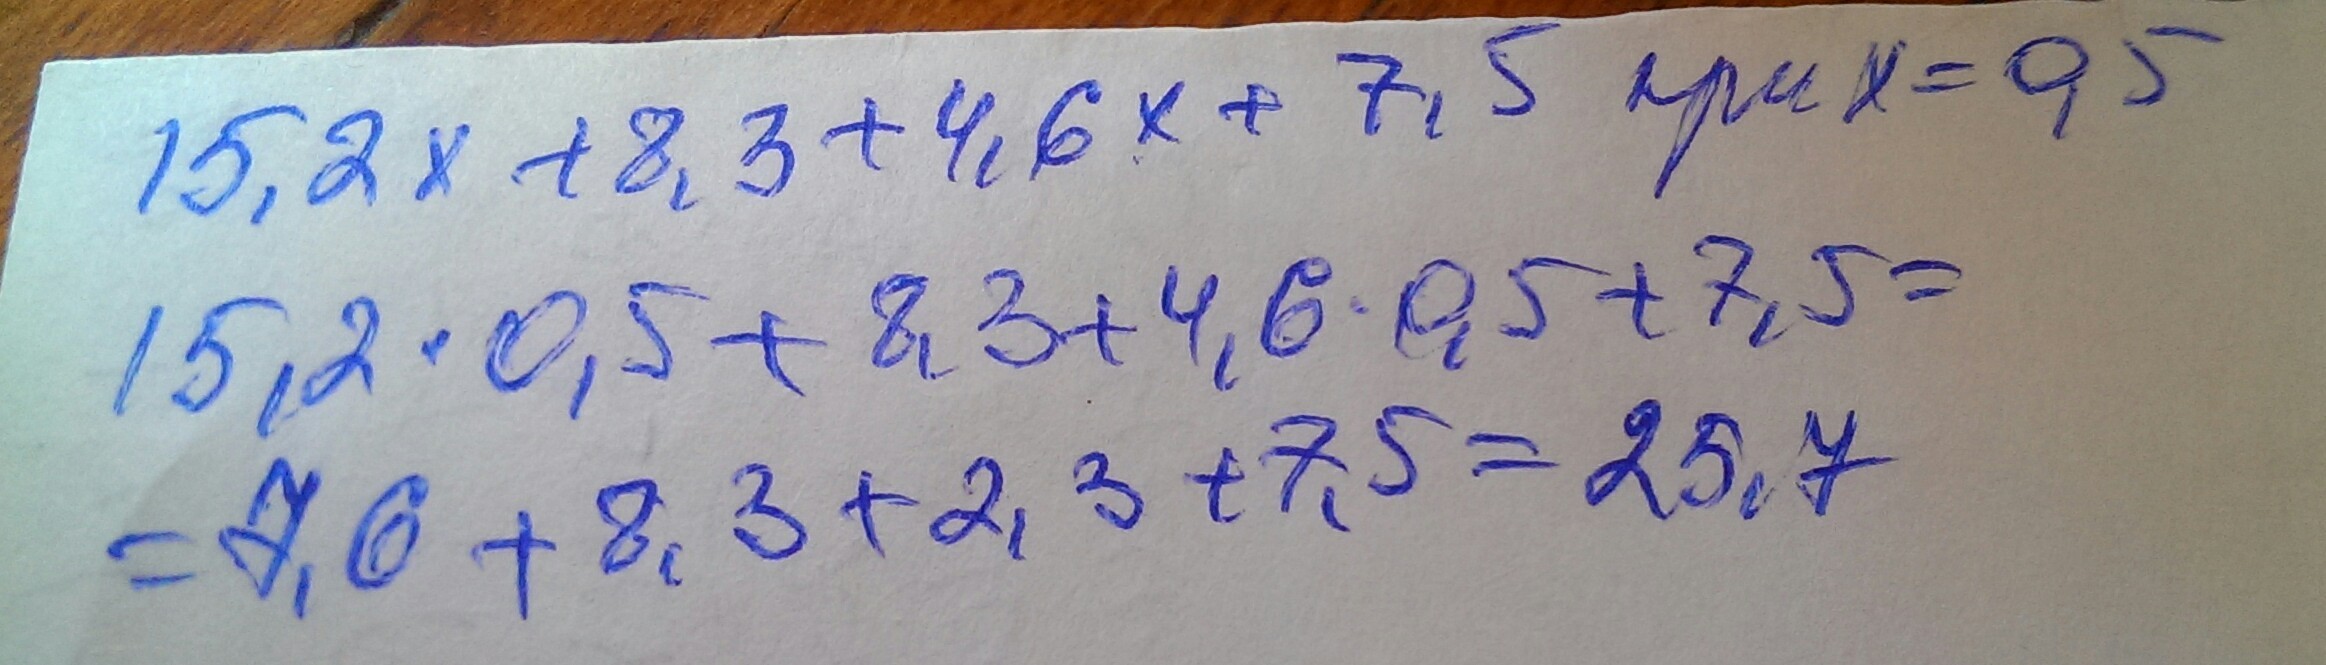 15,2x+8,3+4,6x+7,5 при x=0,5
15,2·0,5+8,3+4,6·0,5+7,5=
=7,6+8,3+2,3+7,5=25,7